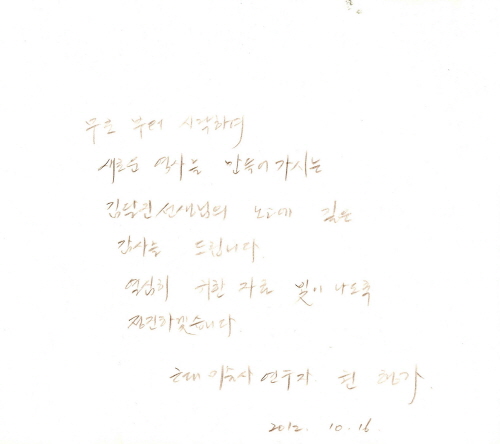 무로 부터 시작하여
새로운 역사를 만들어 가시는
김달진선생님의 노고에 깊은
감사를 드립니다.
열심히 귀한 자료 빛이 나도록
정진하겠습니다.
근대 미술사 연구자
2012. 10. 16